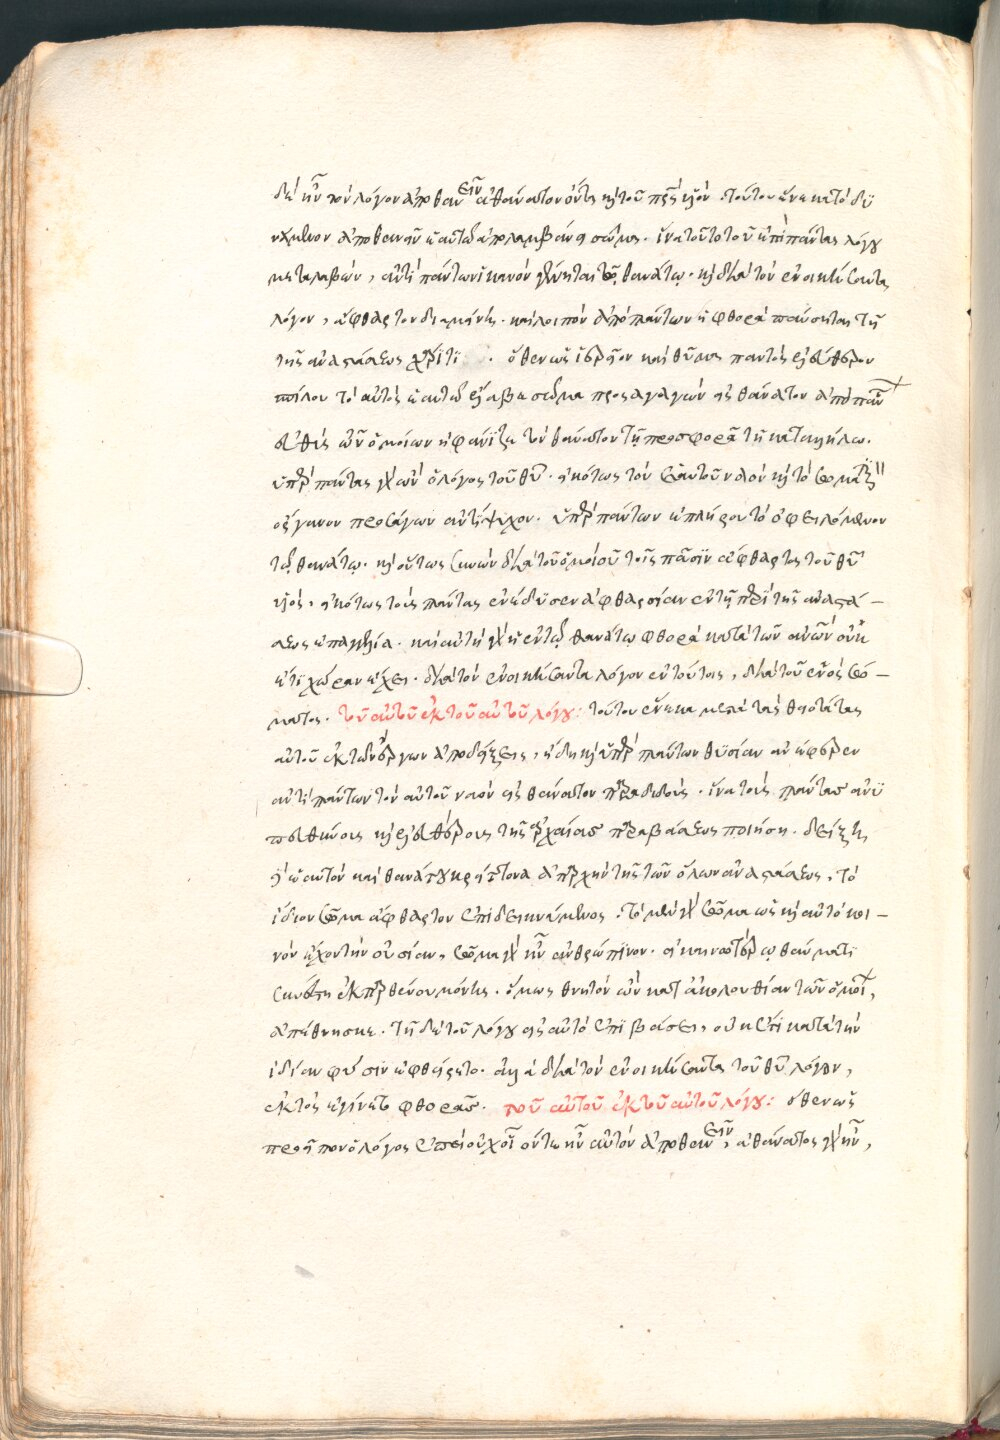 δὲ ἦν τὸν λόγον ἀποθανεῖν ἀθάνατον ὄντα κ(αὶ) τοῦ πρς υἱόν. τούτου ἕνεκα τὸ δυ
νάμενον ἀποθανεῖν ἑαυτῶ ἀπολαμβάνει σῶμα. ἵνα τοῦτο τοῦ ἐπὶ πάντας λόγου
μεταλαβών, ἀντὶ πάντων ἱκανὸν γένηται τῶ θανάτω. κ(αὶ) διὰ τὸν ἐνοικήσαντα
λόγον, ἄφθαρτον διαμένη. καὶ λοιπὸν ἀπὸ πάντων ἡ φθορὰ παύσηται τῆ
τῆς ἀναστάσεως χάριτι . ὅθεν ὡς ἱερεῖον καὶ θῦμα παντὸς ἐλεύθερον
σπίλου τὸ αὐτὸς ἑαυτῶ ἔλαβε σῶμα προσαγαγὼν εἰς θάνατον ἀπὸ πάντ
εὐθὺς τῶν ὁμοίων ἠφάνιζε τὸν θάνατον τῆ προσφορᾶ τῆ καταλλήλω.
ὑπὲρ πάντας γὰρ ὢν ὁ λόγος τοῦ θυ. εἰκότως τὸν ἑαυτοῦ ναὸν κ(αὶ) τὸ σωματικ
ὄργανον προσάγων ἀντίψυχον. ὑπὲρ πάντων ἐπλήρου τὸ ὀφειλόμενον
τῶ θανάτω. κ(αὶ) οὕτως συνὼν διὰ τοῦ ὁμοίου τοῖς πᾶσιν ἄφθαρτος τοῦ θυ
υἱός, εἰκότως τοὺς πάντας ἐνέδυσεν ἀφθαρσίαν ἐν τῆ περὶ τῆς ἀναστά-
σεως ἐπαγγελία. καὶ αὐτὴ γὰρ ἡ ἐν τῶ θανάτω φθορὰ κατὰ τῶν ἀνων οὐκ
ἔτι χώραν ἔχει. διὰ τὸν ἐνοικήσαντα λόγον ἐν τούτοις, διὰ τοῦ ἑνὸς σώ-
ματος. τοῦ αὐτοῦ ἐκ τοῦ αὐτοῦ λόγου: τούτου ἕνεκα μετὰ τὰς θεότητας
αὐτοῦ ἐκ τῶν ἔργων ἀποδείξεις, ἤδη κ(αὶ) ὑπὲρ πάντων θυσίαν ἀνέφερεν
ἀντὶ πάντων τὸν αὐτοῦ ναὸν εἰς θάνατον παραδιδούς. ἵνα τοὺς πάντας ἀνυ
πευθύνους κ(αὶ) ἐλευθέρους τῆς ἀρχαίας παραβάσεως ποιήση. δείξη
δὲ ἑαυτὸν καὶ θανάτου κρείττονα ἀπαρχὴν τῆς τῶν ὅλων ἀναστάσεως, τὸ
ἴδιον σῶμα ἄφθαρτον ἐπιδεικνύμενος. τὸ μὲν γὰρ σῶμα ὡς κ(αὶ) αὐτὸ κοι-
νὸν ἔχον τὴν οὐσίαν, σῶμα γὰρ ἦν ἀνθρώπινον. εἰ καινοτέρω θαύματι
συνέστη ἐκ παρθένου μόνης. ὅμως θνητὸν ὂν κατ ἀκολουθίαν τῶν ὁμοί,
ἀπέθνησκε. τῆ δὲ τοῦ λόγου εἰς αὐτὸ ἐπιβάσει, οὐκ ἔτι κατὰ τὴν
ἰδίαν φύσιν ἐφθείρετο. ἀλλὰ διὰ τὸν ἐνοικήσαντα τοῦ θυ λόγον,
ἐκτὸς ἐγίνετο φθορᾶς. τοῦ αὐτοῦ ἐκ τοῦ αὐτοῦ λόγου: ὅθεν ὡς
προεῖπον ὁ λόγος ἐπεὶ οὐχ οἷόν τε ἦν αὐτὸν ἀποθανεῖν, ἀθάνατος γὰρ ἦν,